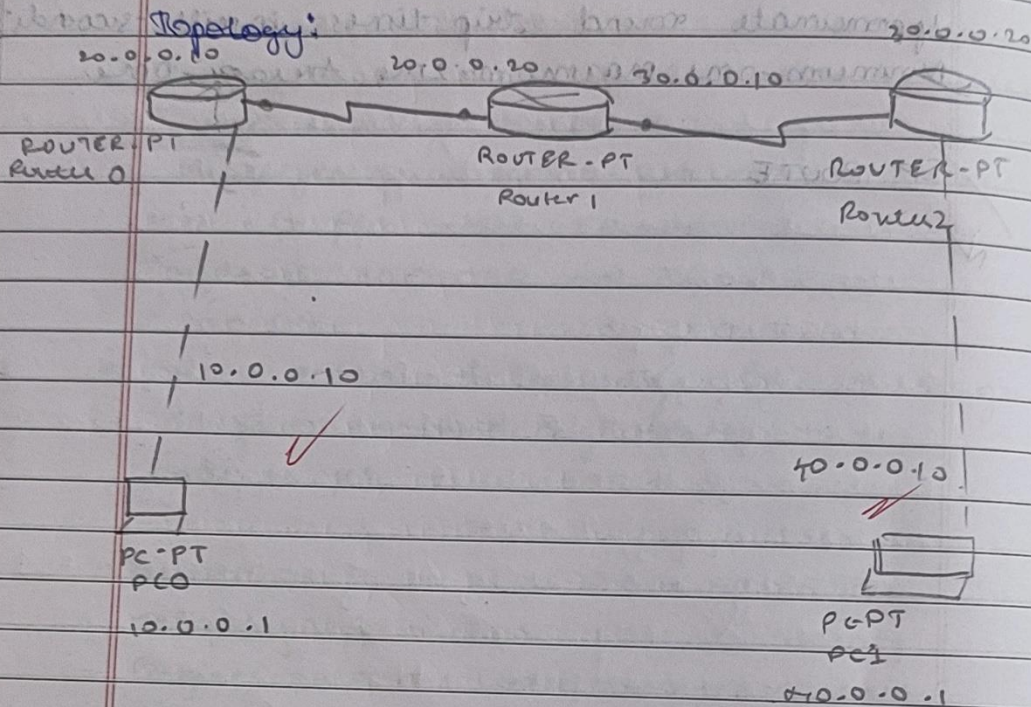 Topology:
20.0.0.10
20.0.0.20
30.0.0.10
30.0.0.20
ROUTER-PT
Router 0
ROUTER-PT
Router 1
ROUTER-PT
Router2
10.0.0.10
40.0.0.10
PC-PT
PC0
10.0.0.1
PC-PT
PC1
40.0.0.1